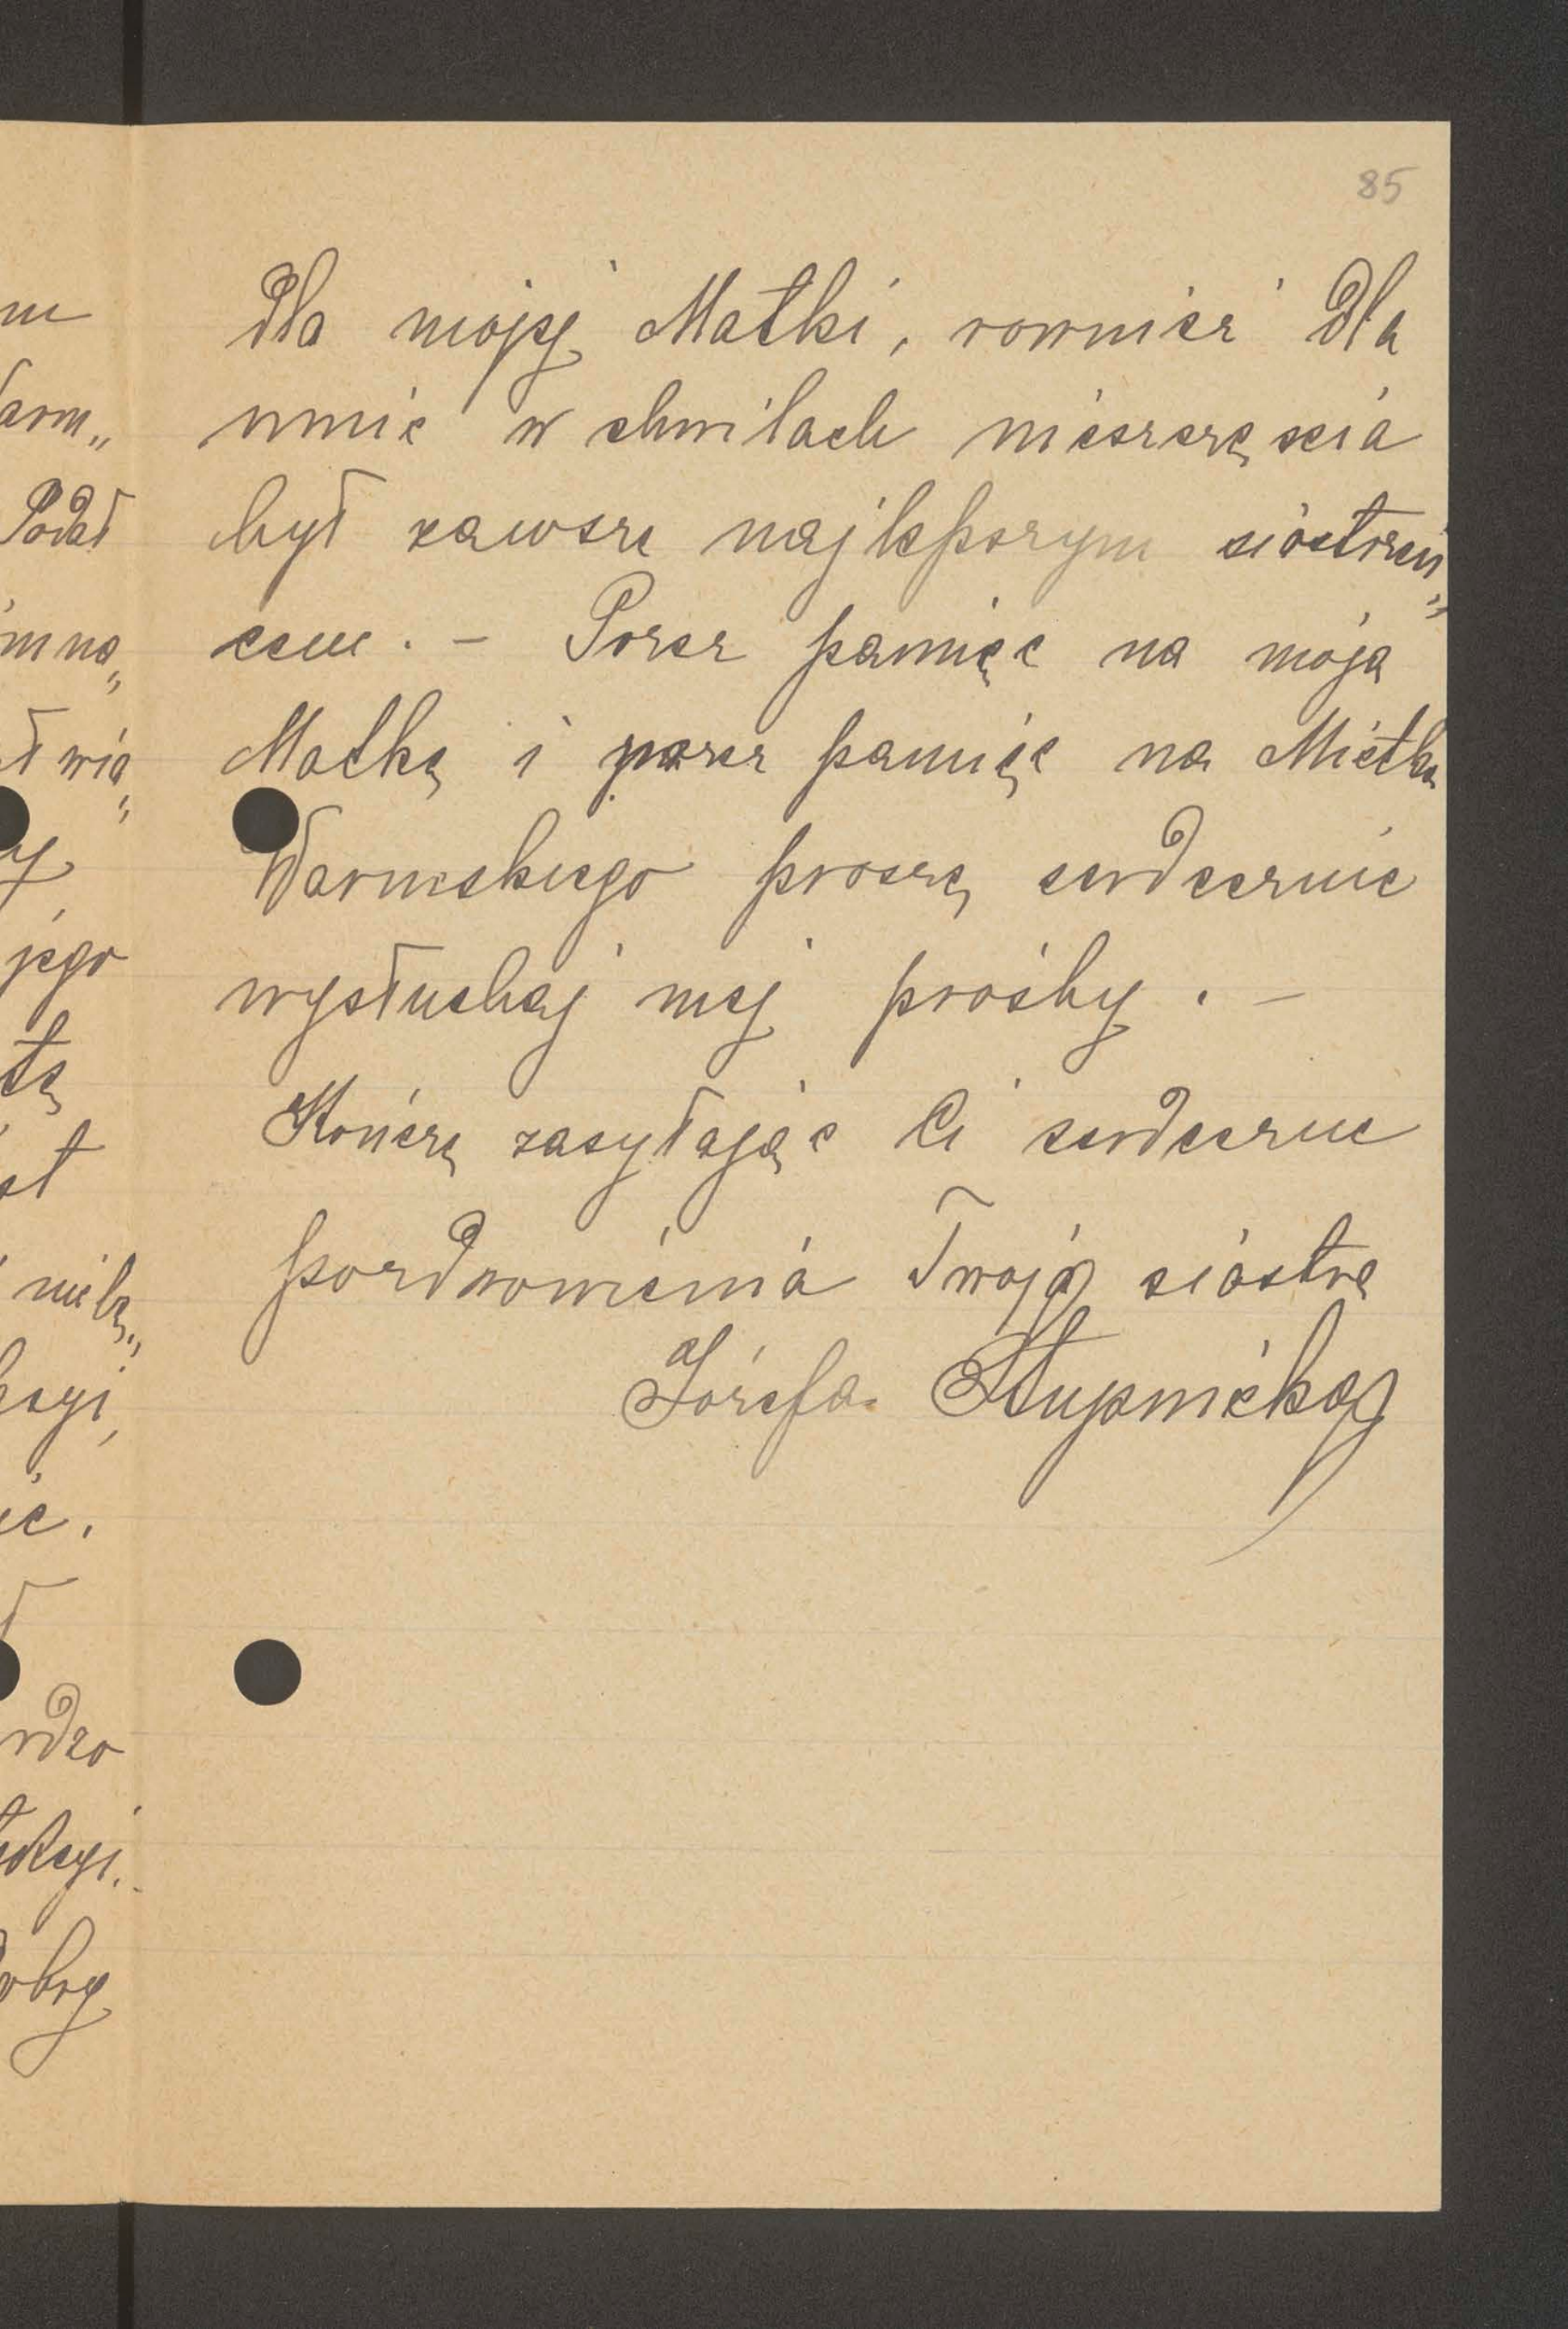 85
dla mojej Matki, rownież dla
mnie w chwilach nieszczęscia
był zawsze najlepszym siostrzeń„
cem. – Przez pamięć na moja
Matkę i przez pamięć na Mietka
Warmskiego proszę serdecznie
wysłuchaj mej prośby. –
Kończę zasyłając Ci serdeczne
pozdrowienia Twoja siostra
Józefa Słupnicka